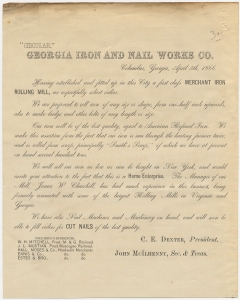 "CIRCULAR."
GEORGIA IRON AND NAIL WORKS CO.
Columbus, Georgia, April 5th,
Having established and fitted up in this City a first class MERCHANT IRON
ROLLING MILL, we respectfully solicit orders.
We are prepared to roll iron of any size or shape, from one-half inch upwards,
also to make bridge and other bolts of any length or size.
Our iron will be of the best quality, equal to American Refined Iron. We
make this assertion from the fact that our iron is run through the heating furnace twice,
and is rolled from scrap principally, "Smith's Scrap," of which we have at present
on hand several hundred tons.
We will sell our iron as low as can be bought in New York, and would
invite your attention to the fact that this is a Home Enterprise. The Manager of our
Mill, James W. Churchill, has had much experience in this business, being
formerly connected with some of the largest Rolling Mills in Virginia and
Georgia.
We have also Nail Machines and Machinery on hand, and will soon be
able to fill orders for CUT NAILS of the best quality.
W. H. MITCHELL, Prest. M. & G. Railroad.
J. L. MUSTIAN, Prest. Muscogee Railroad.
HALL, MOSES & CO., Hardware Merchants.
C. E. DEXTER, President.
JOHN McILHENNY, Sec. & Treas.